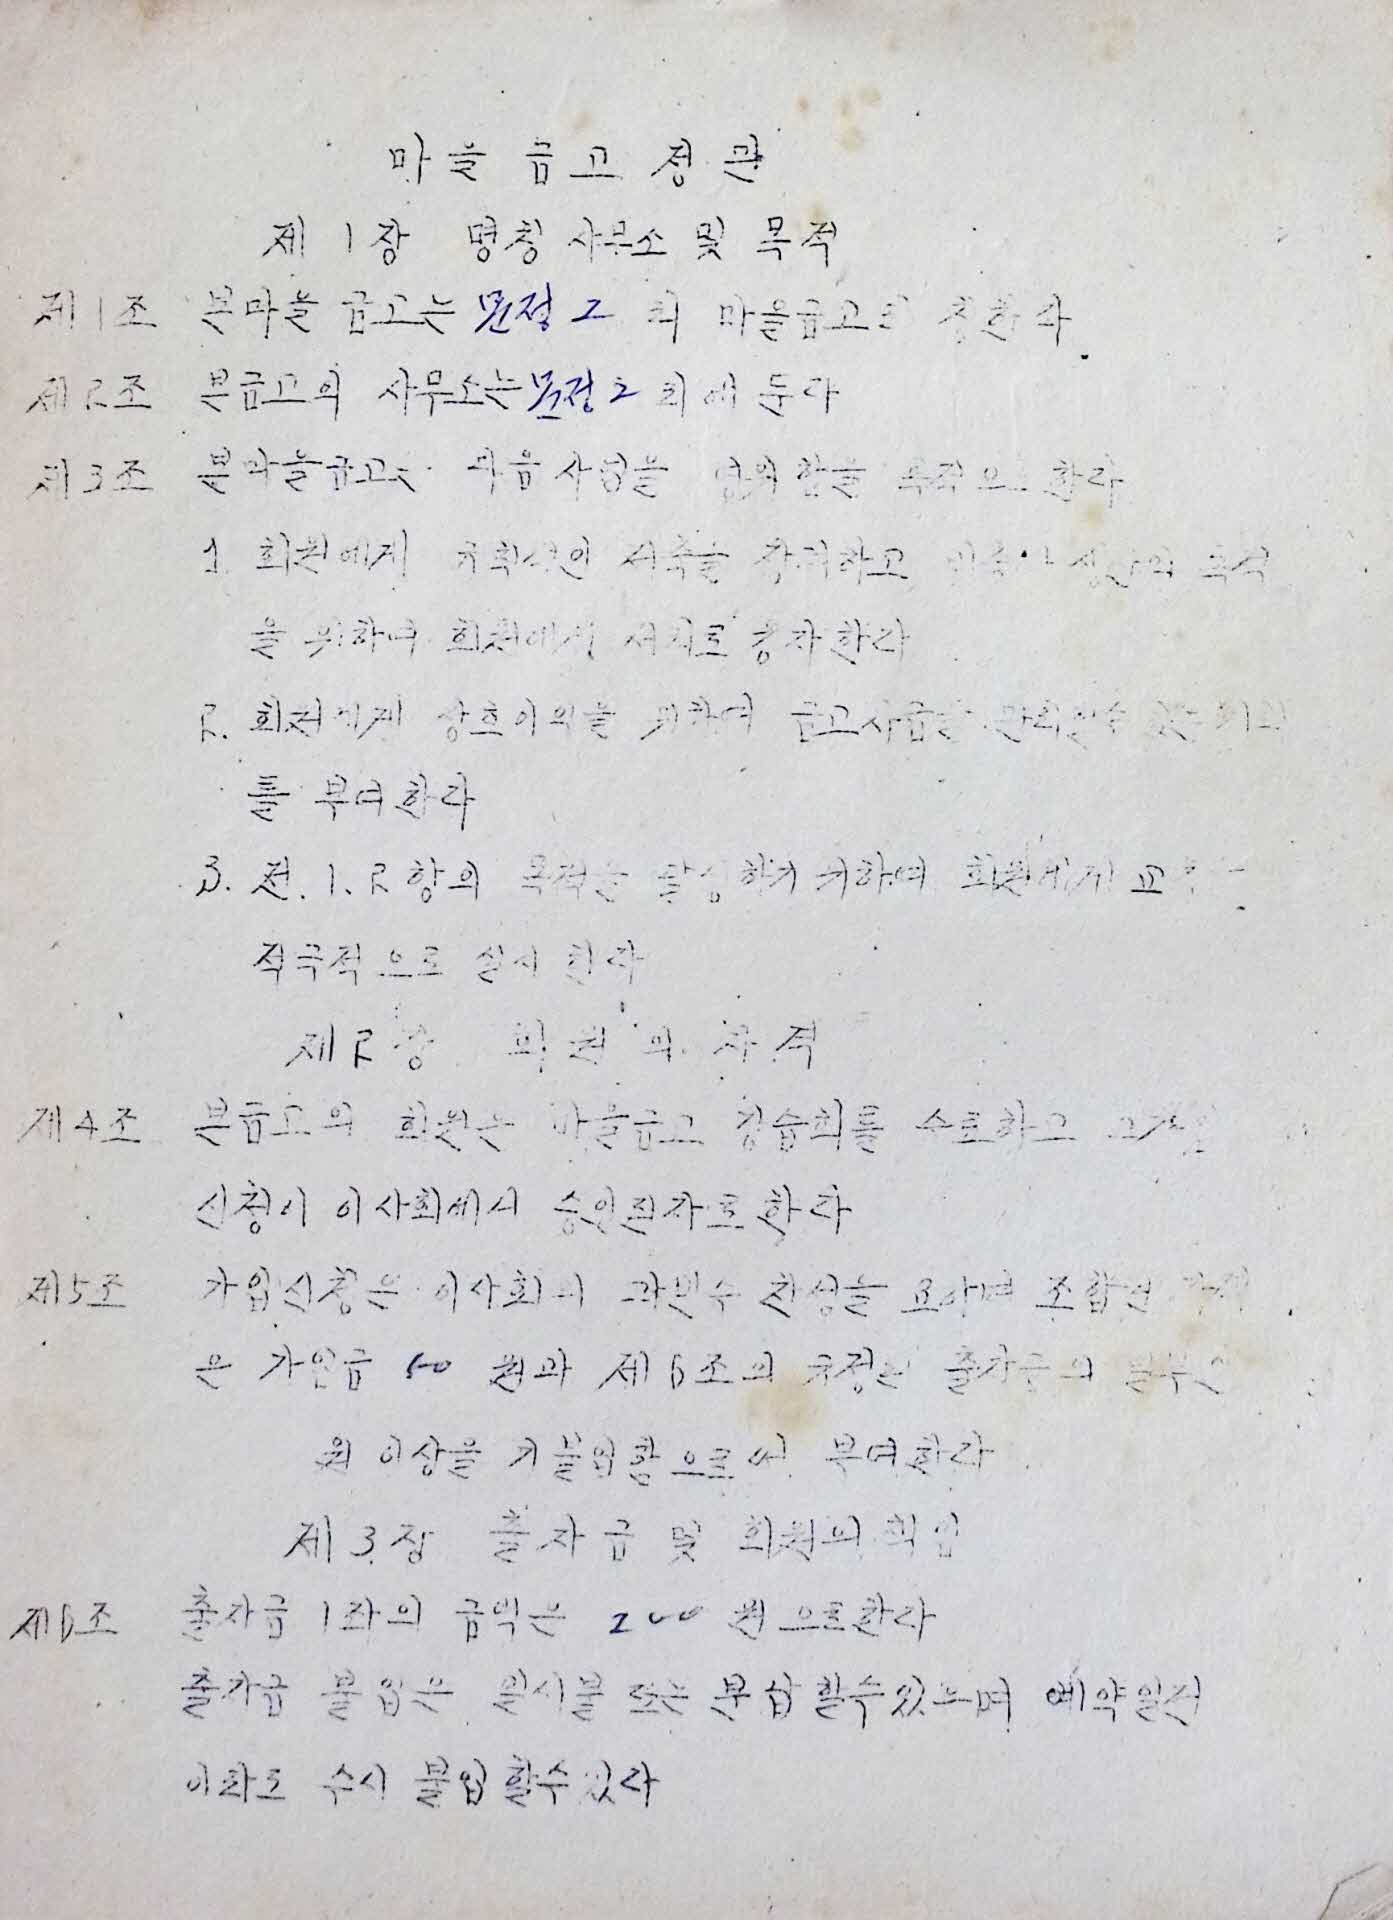 마을금고정관
제1장 명칭 사무소 및 목적
제1조 본마을금고는 문정2 리 마을금고라 칭한다
제2조 본금고의 사무소는 문정2 리에 둔다
제3조 본마을금고는 다음사업을 함을 목적으로 한다
1. 회원에게 저축을 장려하고
을 위하여 회원에게 저리로 융자한다
2. 회원에게 상호이익을 위하여 금고자금을
를 부여한다
3. 전.1.2항의 목적을 달성하기 위하여 회원에게 교
적극적으로 실시한다
제2장 회원의 자격
제4조 본금고의 회원은 마을금고 강습회를 수료하고
신청이 이사회에서 승인된자로 한다
제5조 가입신청은 이사회의 과반수 찬성을 요하며 조합원
은 가입금 50 원과 제6조의 규정된 출자금의
원 이상을 기불입함으로써 부여한다
제3장 출자금 및 회원의 책임
제6조 출자금 1좌의 금액은 200 원으로한다
출자금 불입은 일시불 또는 분납할수있으며 예약일전
이라도 수시 불입할수있다